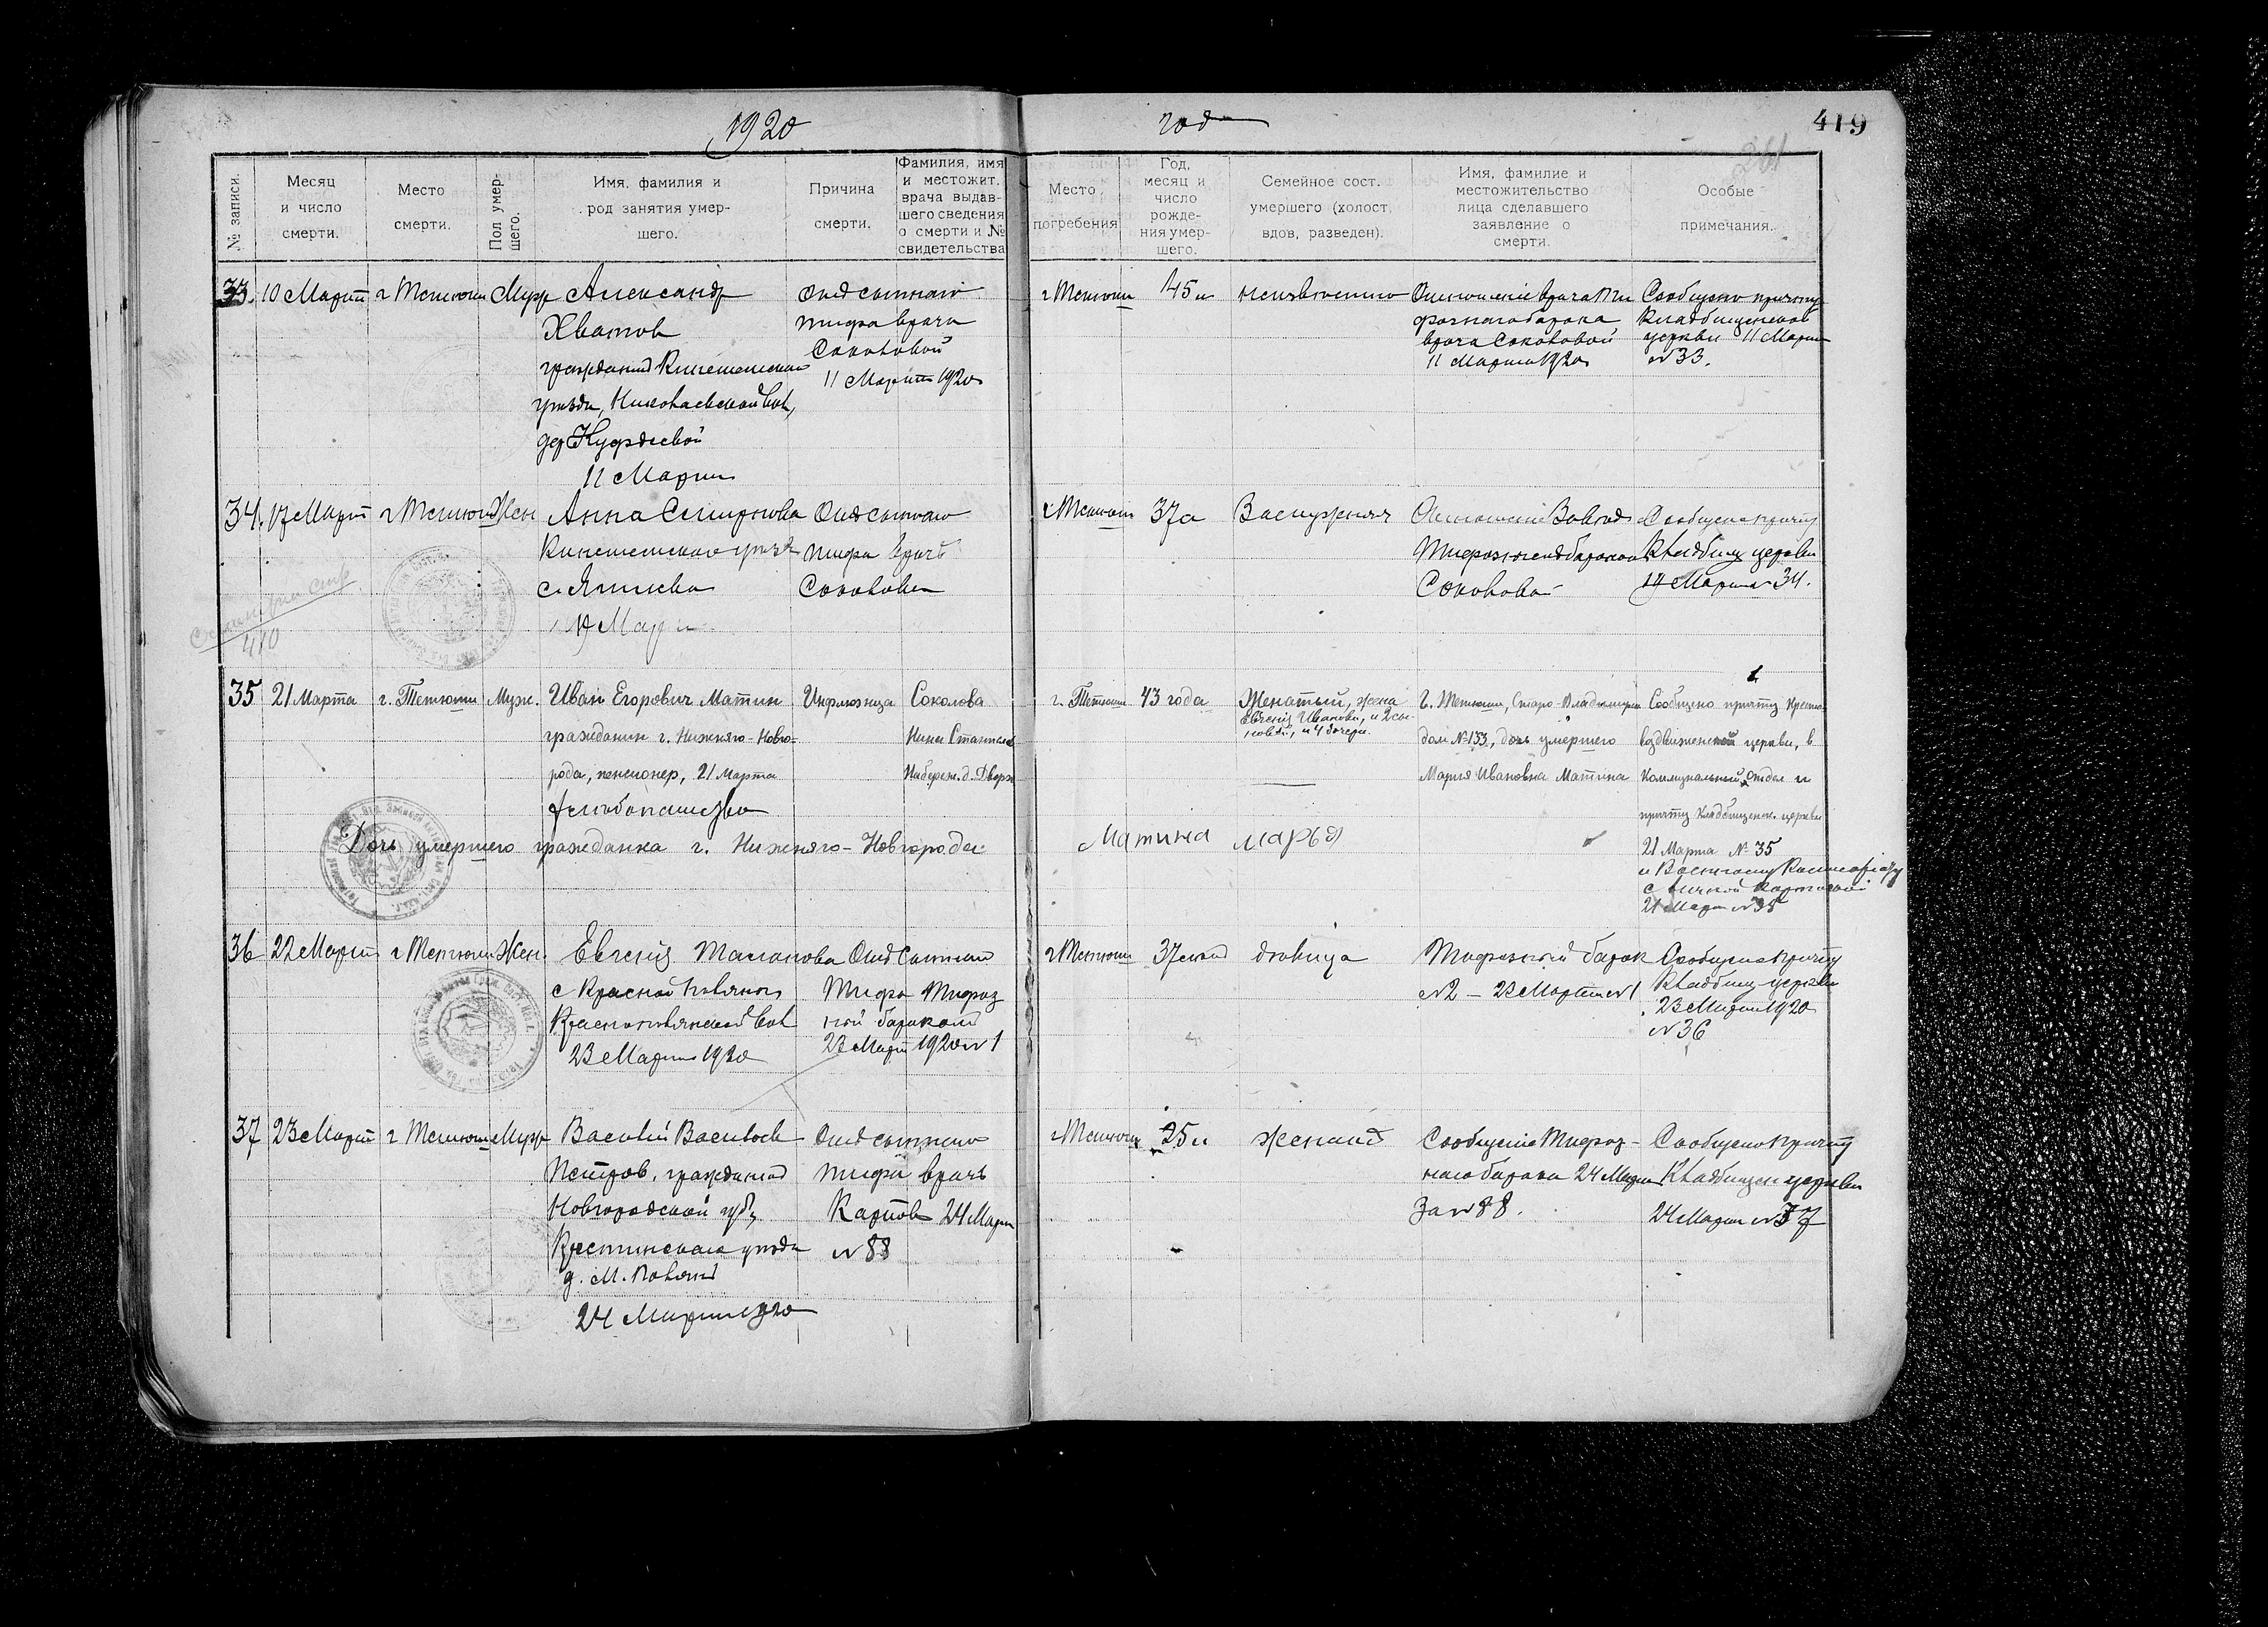 1920
год
419
№ записи.
Месяц
и число
смерти.
Место
смерти.
Пол умер-
шего.
Имя, фамилия и
род занятия умер-
шего.
Причина
смерти.
Фамилия, имя
и местожит.
врача выдав-
шего сведения
о смерти и №
свидетельства
Место
погребения
Год,
месяц и
число
рожде-
ния умер-
шего.
Семейное сост.
умершего (холост,
вдов, разведен).
Имя, фамилие и
местожительство
лица сделавшего
заявление о
смерти.
Особые
примечания.
33. 10 Марта
г Тетюши
Муж
Александр
Хватов
гражданин Кинешемскаго
уезда, Николаевской вол,
дер
11 Марта
От сыпнаго
тифа врача
Соколовой
11 Марта 1920
г Тетюши
45 л
неизвестно
Отношение врача Ти
фознаго барака
врача Соколовой
11 Марта 1920
Сообщено причту
Кладбищенской
церкви 11 Марта
№ 33.
34. 17 Март
г Тетюши
Жен
Анна Смирнова
Кинешемскаго уезд
с.
Март
От сыпнаго
тифа врачь
Соколова
г Тетюши
37 л
Замужняя
Отношение Завед
Тифознаго бараком
Соколова
Сообщено причту
Кладбищ церкви
Марта № 34.
410
35
21 Марта
г. Тетюши
Муж.
Иван Егорович Матин
гражданин г. Нижняго-Новго-
рода, пенсионер, 21 Марта
Инфлюэнца
Соколова
Нина
Набереж. д.
г. Тетюши
43 года
Женатый, жена
Евгения Иванова, и 2 сы-
новей, и 4 дочери.
Г. Тетюши, Старо-Владимирск
дом № 133, дочь умершего
Мария Ивановна Матина
Сообщено причту Кресто-
воздвиженской церкви, в
Коммунальный отдел и
причту Кладбищенск. церкви
21 Марта № 35
и Военному Комиссариату
с личной карточкой
21 Март № 35
Дочь умершего гражданка г. Нижняго-Новгорода:
Матина Марья
36
22 Марта
г Тетюши
Жен.
Евгения
с Красной Поляны
Краснополянской вол
23 Марта 1920
От Сыпнаго
Тифа Тифоз
ный бараком
23 Март 1920 № 1
г Тетюши
девица
Тифозный барак
№ 2 – 23 Марта № 1
Сообщено причту
Кладбищ церкви
23 Марта 1920
№ 36
37
23 Март
г Тетюши
Муж
Василий Васильев
Петров, гражданин
Новгородской губ,
Крестинскаго уезда
24 Марта 1920
От сыпнаго
тифа врачь
Карпов 24 Марта
№ 88
г Тетюши
25 л
женат
Сообщение Тифоз-
наго барака 24 Марта
за № 88.
Сообщено причту
Кладбищен церкви
24 Марта № 37